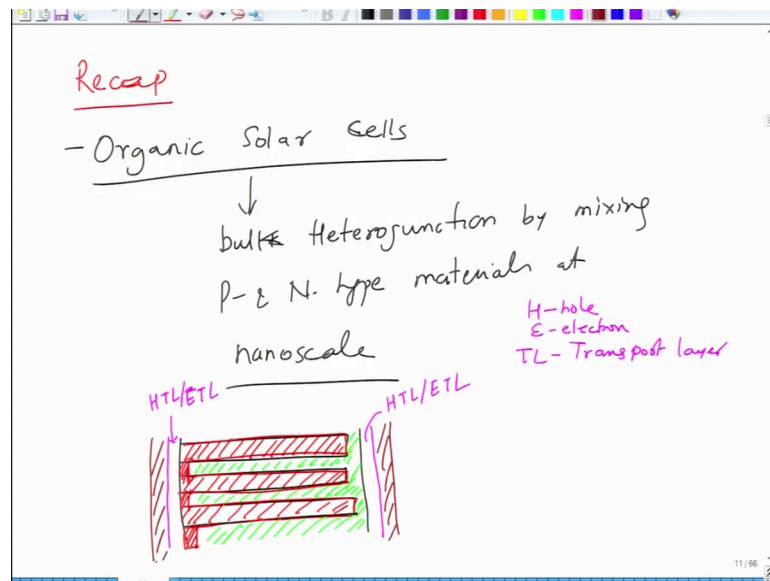 Recap
- Organic Solar Cells
bulk Heterojunction by mixing
P- & N-type materials at
nanoscale
H-hole
E-electron
TL-Transport layer
HTL/ETL
HTL/ETL
11/66